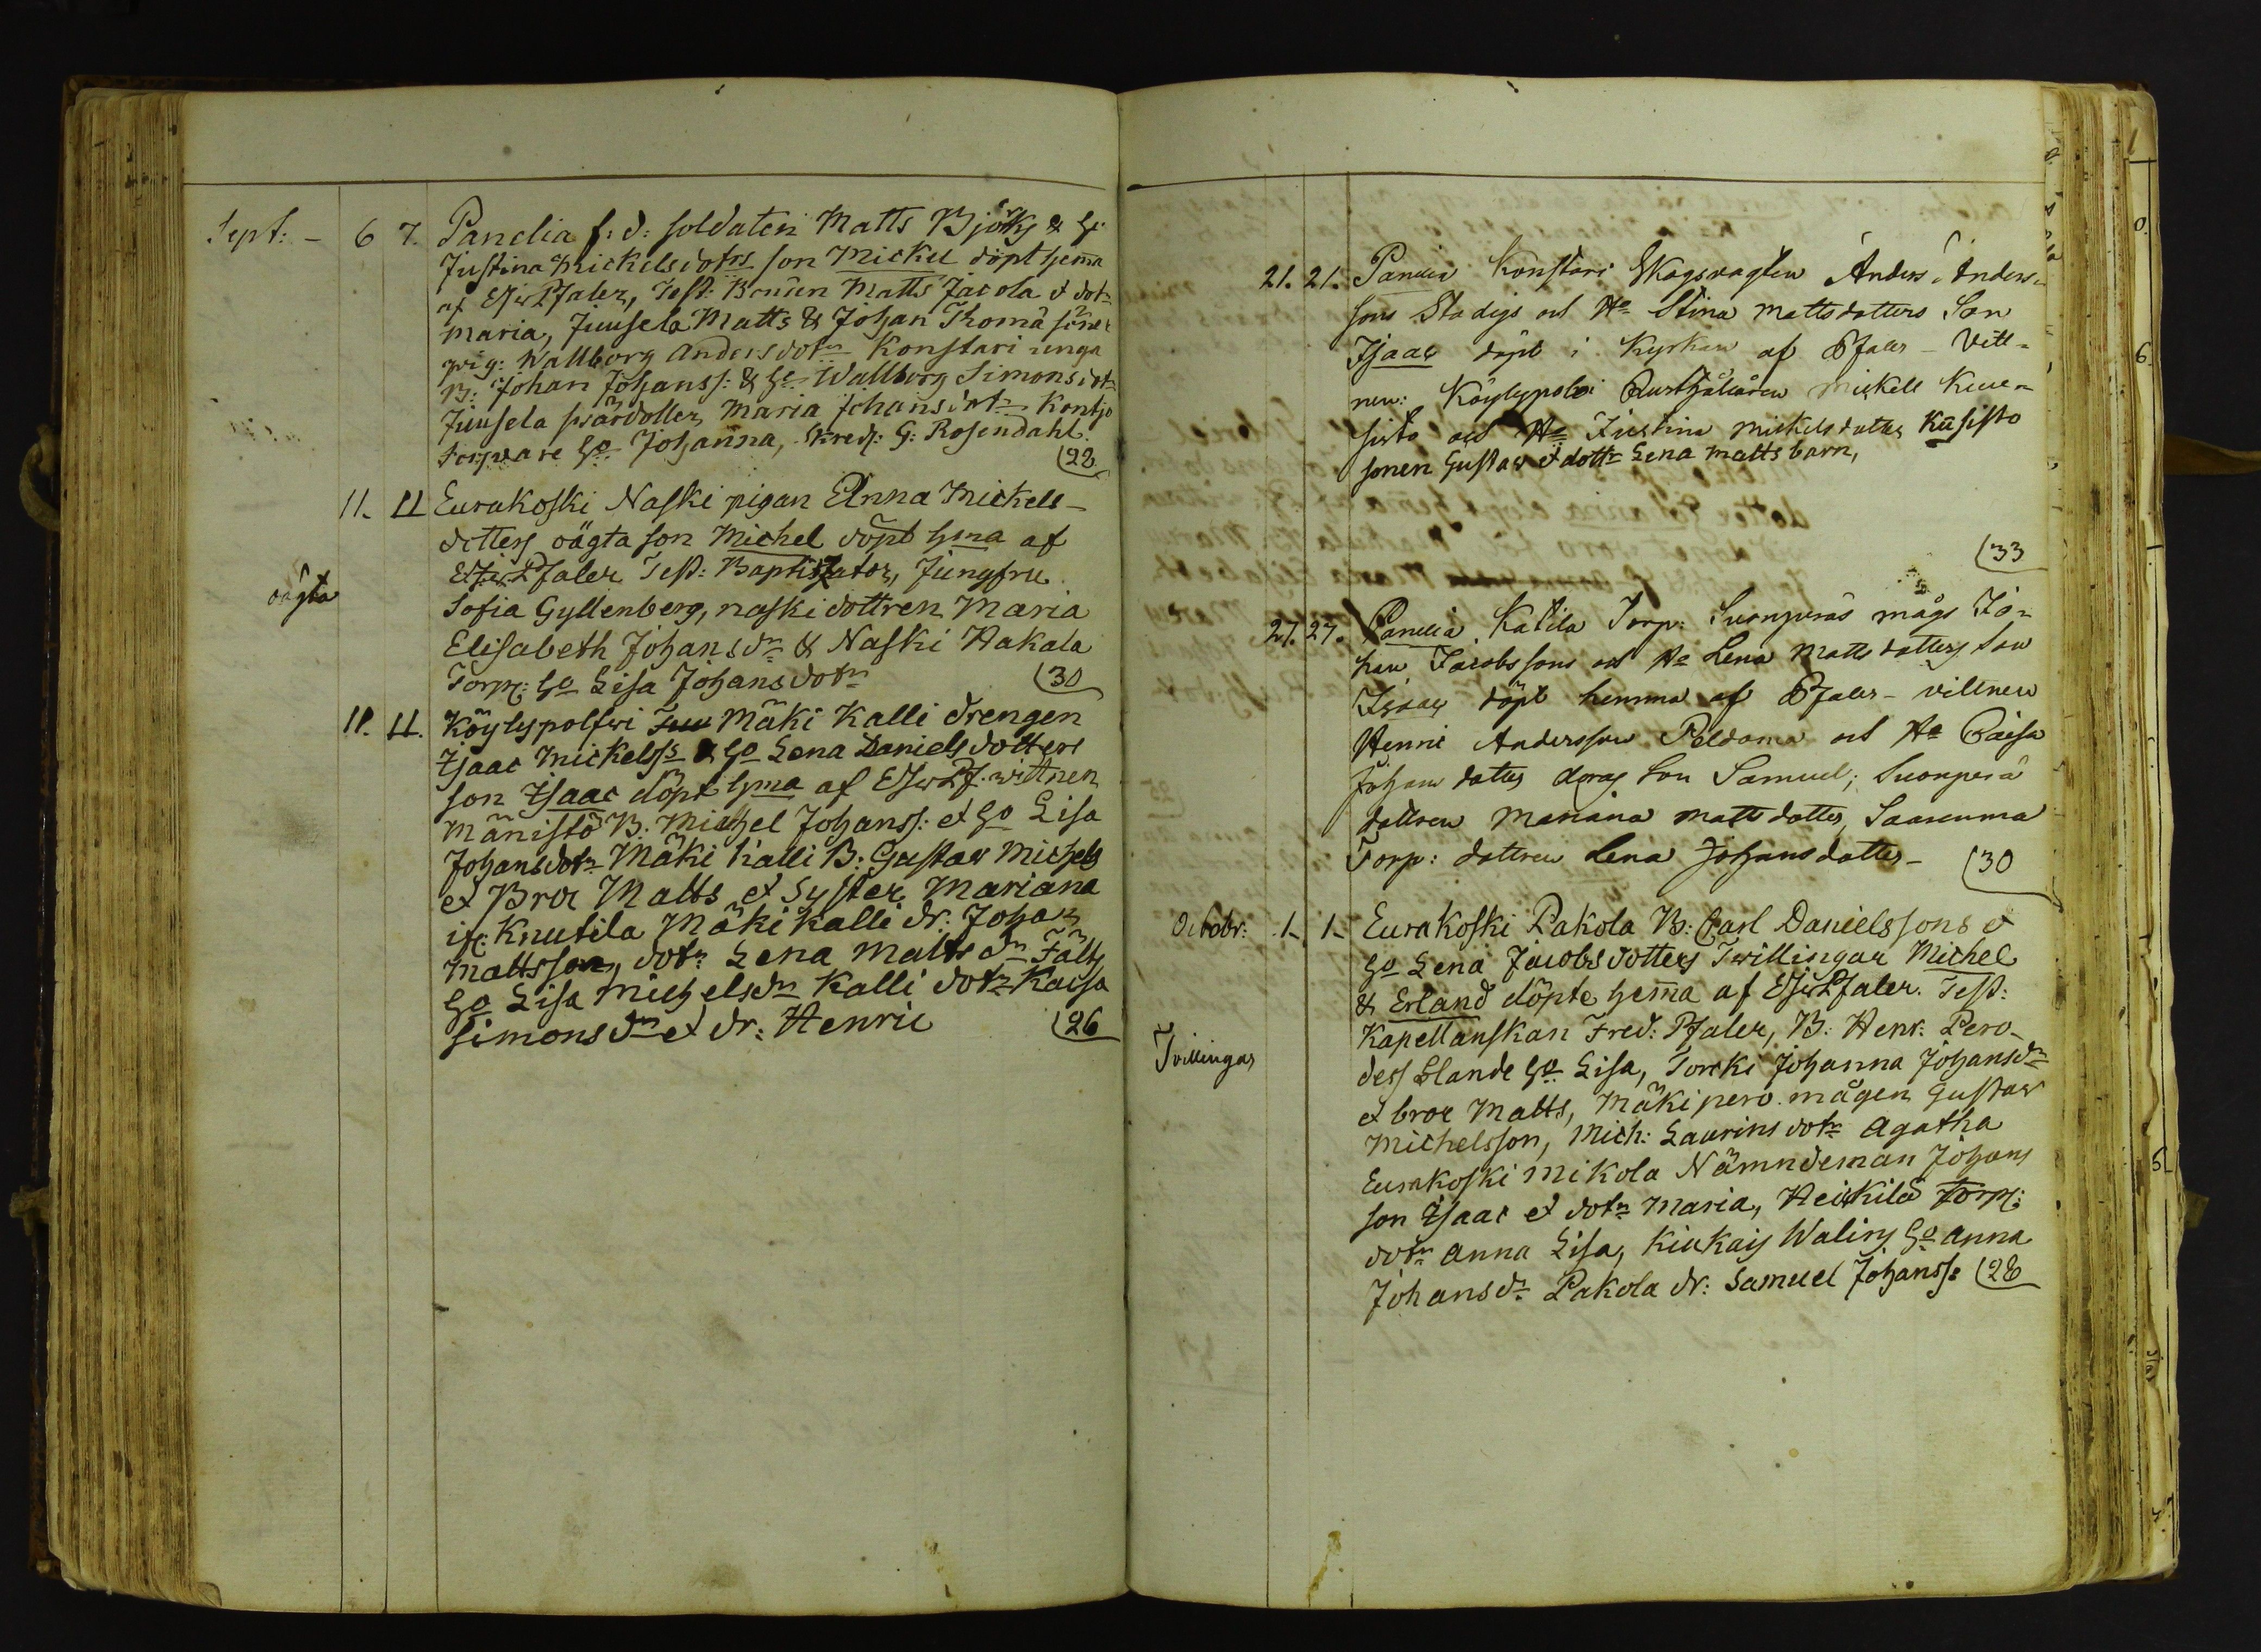 Sept: - 6 7. Panelia f: d: soldaten Matts Björks & Ho
Justina Mickelsdotrs son Mickel döpt hema
af Pfaler, Test: Matts Jacola & dotr
Maria, Juusela Matts & Johan Thomä söner
pig: Wallborg Andersdotr Konstari unga
B: Johan Johanss: & Ho Wallborg Simonsdotr
Juusela Maria Johansdotr Kontjo
Torpare Ho Johanna, G: Rosendahl.
(28
11. 11 Eurakoski Naski pigan Anna Mickels-
dotters oägta son Michel döpt hma af
Pfaler Test: Baptisator, Jungfru
oägta
Sofia Gyllenberg, naski dottren Maria
Elisabeth Johansdr & Naski Hakala
Torp: Ho Lisa Johansdotr (30
11. 11. Köylypolfwi Mäki Kalli drengen
Isaac Mickelss & Ho Lena Danielsdotters
son Isaac döpt hma af wittnen
Mänistö B. Michel Johanss: et Ho Lisa
Johansdotr Mäki Kalli B: Gustav Michels
et Bror Matts et Syster Mariana
Knutila Mäki Kalli dr: Johan
Mattsson, dotr Lena Matts dr Fält
Ho Lisa Michelsdr Kalli dotr Kaisa
Simonsdr et dr: Henric (26
21. 21. Panelia Konstari Skogsvagten Anders Anders-
sons Stadigs och Ho Stina Mattsdotters Son
Isaac döpt i Kyrkan af Pfaler - Vitt-
nen: Mickell Kuu-
sisto och Ho Justina Mickelsdotter Kusisto
sonen Gustav & dottr Lena Matts barn,
(33
27. 27. Panelia Katila Torp: Suonperäs mågs Jo-
han Jacobssons och Ho Lena Mattsdotters Son
Isaac döpt hemma af Pfaler - vittnen
Henric Andersson Peldoma och Ho Caisa
Johansdotter deras Son Samuel; Suonperä
dottren Mariana Mattsdotter,
Torp: dottren Lena Johansdotter - (30
Octobr: 1. 1. Eurakoski Pakola B: Carl Danielssons &
Ho Lena Jacobsdotters Twillingar Michel
& Erland döpte hemma af Pfaler. Test:
Kapellanskan Fred: Pfaler, B: Henr: Pero-
Tvillingar
Ho Lisa, Torcki Johanna Johansdr
et bror Matts, Mäkipero mågen Gustav
Michelsson, Mich: Laurins dotr Agatha
Eurakoski Mikola Nämndeman Johans
son Isaac et dotr Maria, Heikilä Torp:
dotr Anna Lisa, Kiukais Walins Ho Anna
Johansdr Pakola dr: Samuel Johanss: (28